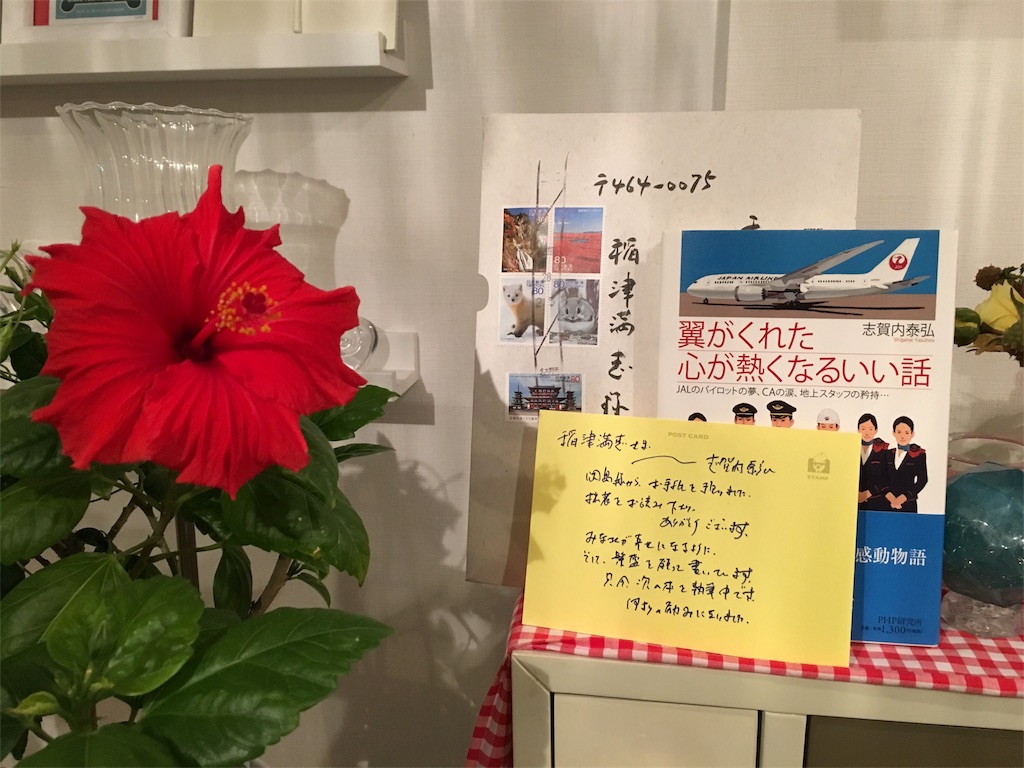 〒464-0075
稲津満
80
80
80
JAPAN AIRLINES
志賀内泰弘
Shiganai Yasuhiro
翼がくれた
心が熱くなるいい話
JALのパイロットの夢、CAの涙、地上スタッフの矜持…
感動物語
PHP研究所
1,300円
POST CARD
稲津満
志賀内泰弘
お手紙を
拙著をお読み下さり、
ありがとうございます。
みなが幸せになるように、
そして、繁盛を願って書いています。
只今次の本を執筆中です。
励みになりました。